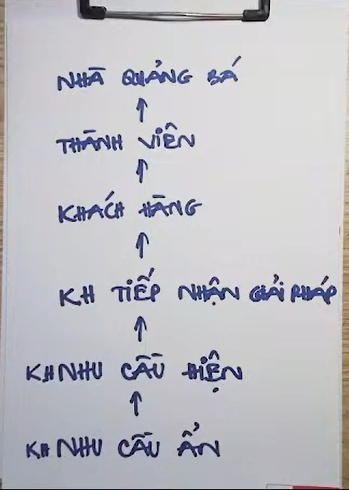 NHÀ QUẢNG BÁ
↑
THÀNH VIÊN
↑
KHÁCH HÀNG
↑
KH TIẾP NHẬN GIẢI PHÁP
↑
KH NHU CẦU HIỆN
↑
KH NHU CẦU ẨN